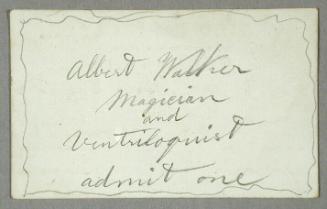 Albert Walker
Magician
and
Ventriloquist
admit one